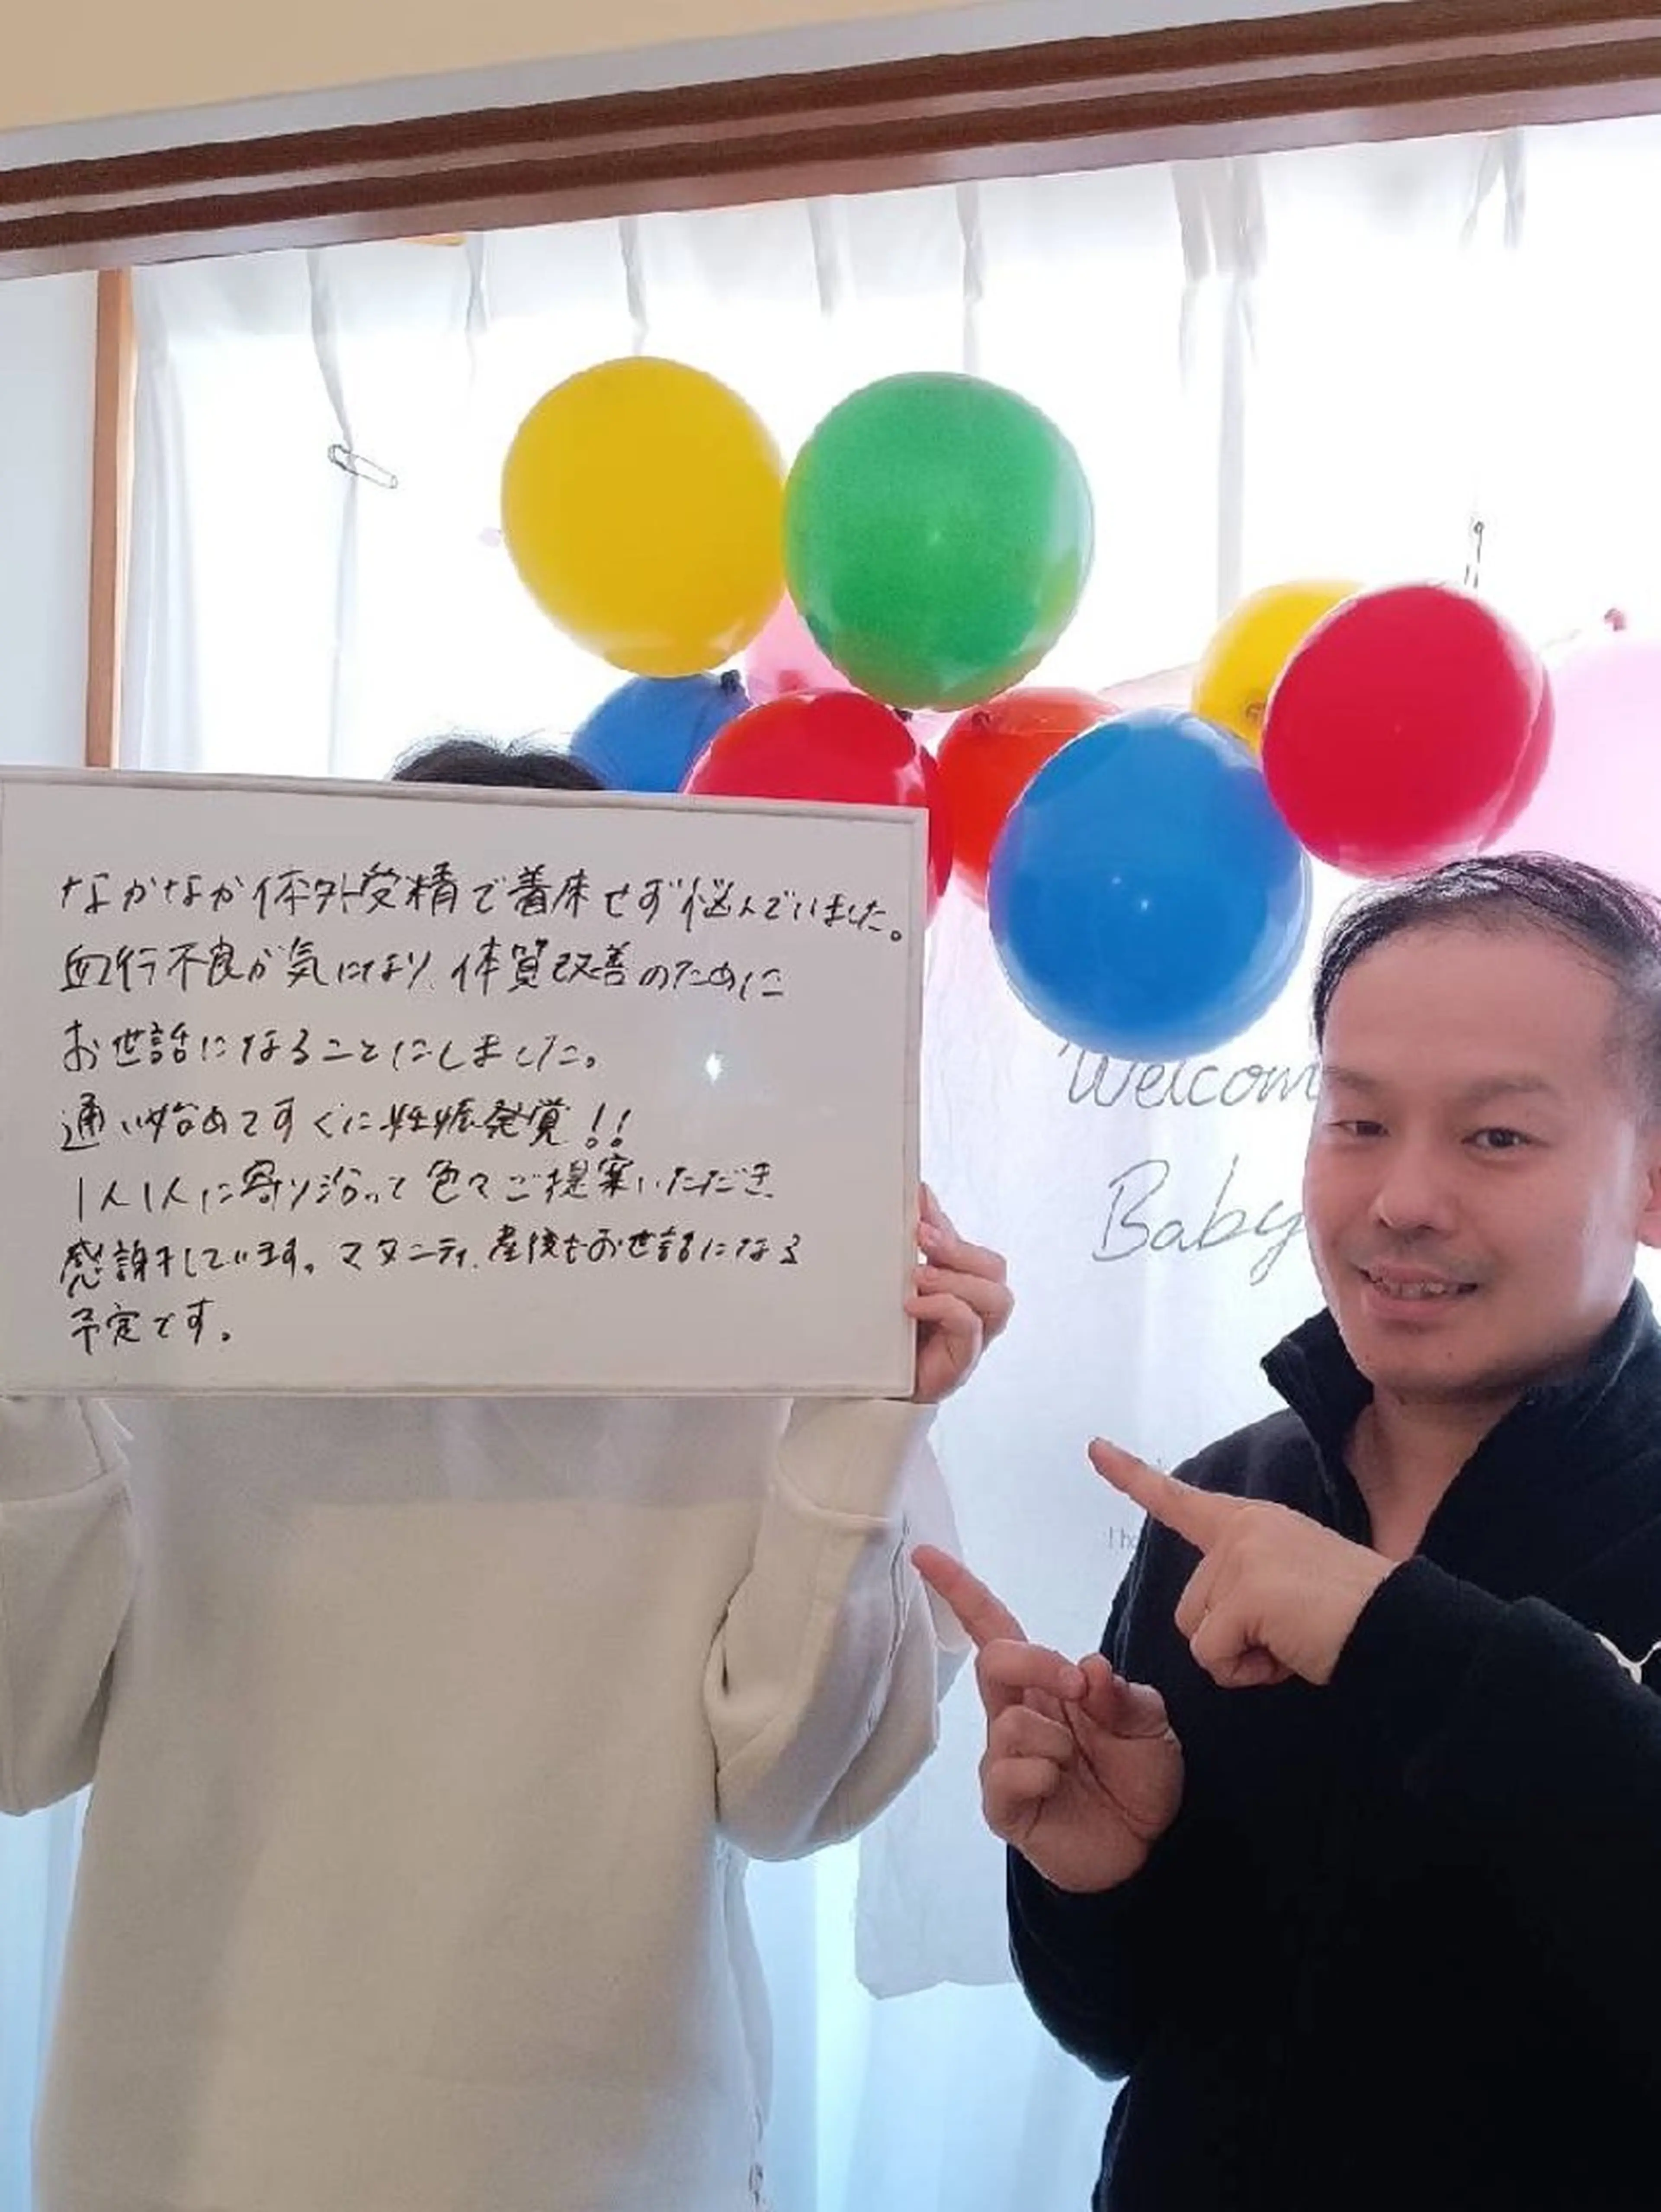 なかなか体外受精で着床せず悩んでいました。
血行不良が気になり、体質改善のために
お世話になることにしました。
通い始めてすぐに妊娠発覚!!
1人1人に寄り沿って色々ご提案いただき
感謝しています。マタニティ、産後もお世話になる
予定です。
Welcom
Baby